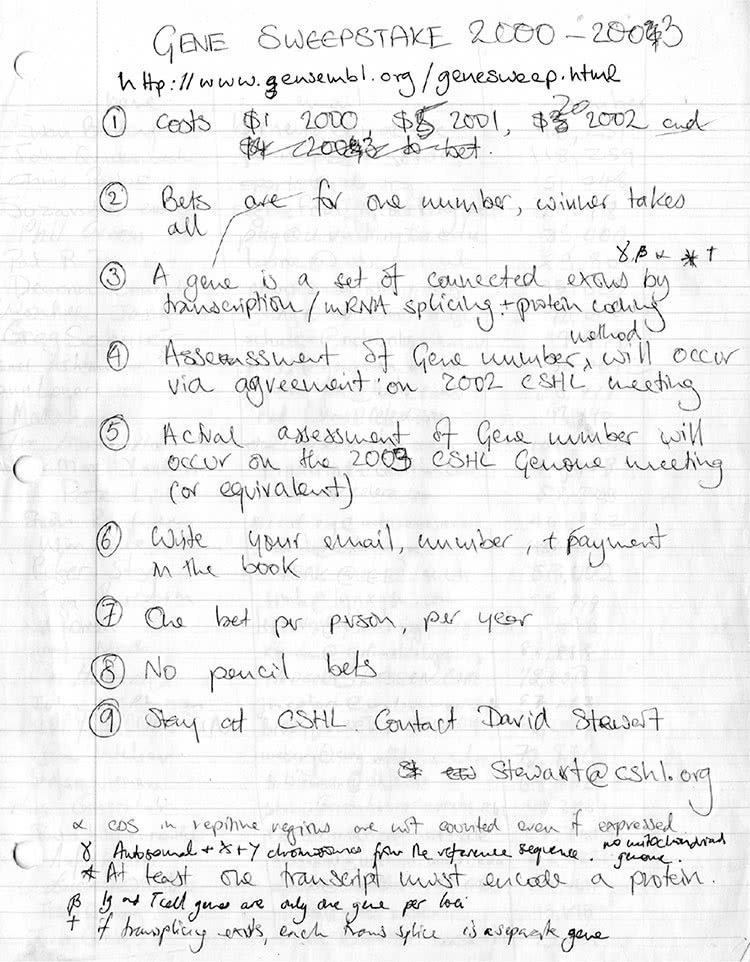 GENE SWEEPSTAKE 2000 – 2003
http://www.ensembl.org/genesweep.html
① Costs $1 2000 $5 2001, $20 2002 and
$ 2003 to bet.
② Bets are for one number, winner takes
all
γ, β α * †
③ A gene is a set of connected exons by
transcription/mRNA splicing + protein coding
method
④ Assessment of Gene number, will occur
via agreement on 2002 CSHL meeting
⑤ Actual assessment of Gene number will
occur on the 2003 CSHL Genome meeting
(or equivalent)
⑥ Write your email, number, + payment
in the book
⑦ One bet per person, per year
⑧ No pencil bets
⑨ Stay at CSHL. Contact David Stewart
Stewart@cshl.org
α CDS in repitive regions are not counted even if expressed
γ Autosomal + X + Y chromosomes from the reference sequence. no mitochondrial
genome.
* At least one transcript must encode a protein.
β Ig and Tcell genes are only one gene per loci
† if transplicing exists, each trans splice is a separate gene